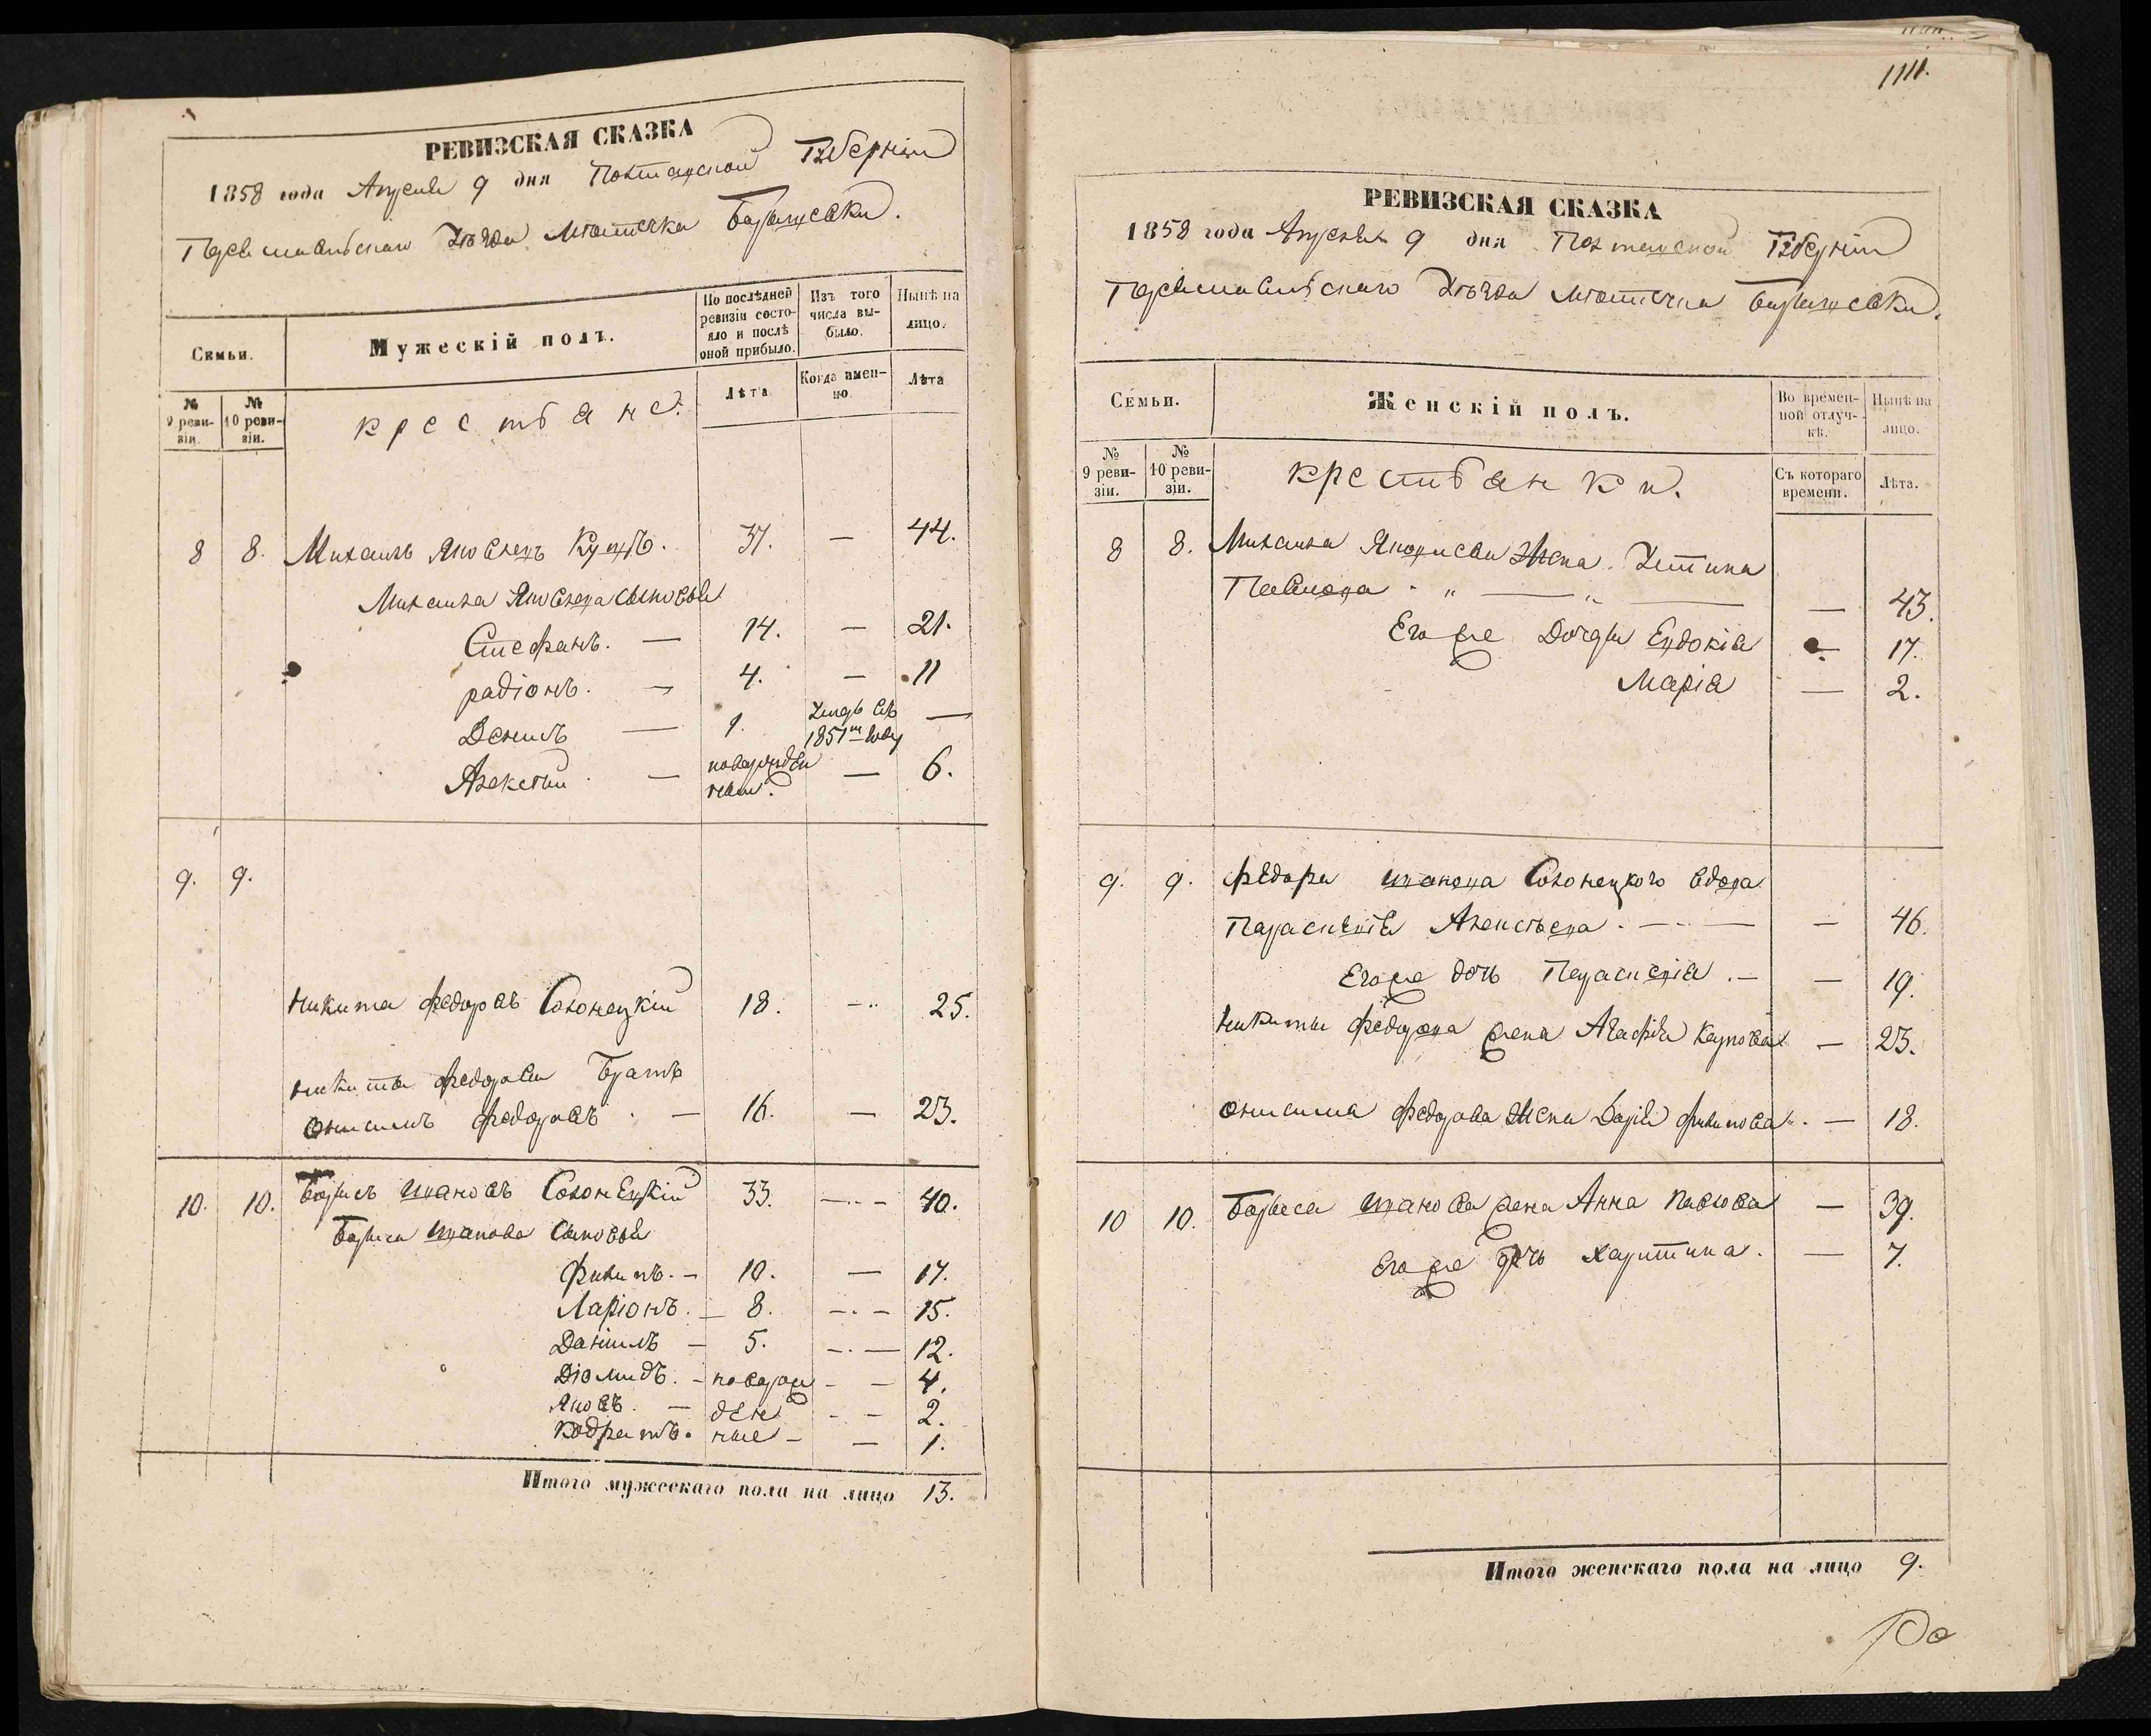 РЕВИЗСКАЯ СКАЗКА
1858 года Апреля 9 дня Полтавской Губерніи
Переяславльскаго Уѣзда Мѣстечка Барышевки.
Семьи.
Мужескій полъ.
По послѣдней ревизіи состояло и послѣ оной прибыло.
Изъ того числа выбыло.
Нынѣ на лицо.
№ 9 ревизіи.
№ 10 ревизіи.
крестьяне.
Лѣта
Когда именно.
Лѣта
8 8. Михаилъ Яковлевъ 37. — 44.
Михаила Яковлева сыновья
Стефанъ. — 14. — 21.
радіонъ. — 4. — 11
Данилъ — 1. Умеръ въ 1851 м году —
Алексѣй — новорожденный. — 6.
9. 9.
Никита Федоровъ Солонецкій 18. — 25.
Никиты Федорова Братъ
Онисимъ Федоровъ . — 16. — 23.
10. 10. Борисъ Ивановъ Солонецкій 33. — 40.
Бориса Иванова Сыновья
Филипъ. — 10. — 17.
Ларіонъ. — 8. — 15.
Даніилъ — 5. — 12.
Діомидъ. — новорож — 4.
Яковъ. — ден — 2.
Кодратъ. ные — — 1.
Итого мужескаго пола на лицо 13.
1111.
РЕВИЗСКАЯ СКАЗКА
1858 года Апреля 9 дня Полтавской Губерніи
Переяславльскаго Уѣзда Мѣстечка Барышевки.
Семьи.
Женскій полъ.
Во временной отлучкѣ.
Нынѣ на лицо.
№ 9 ревизіи.
№ 10 ревизіи.
крестьянки.
Съ котораго времени.
Лѣта.
8 8. Михаила Яковлева Жена Устина
Павлова . „ — „ — — 43.
Его же Дочери Евдокія — 17.
Марія — 2.
9. 9. Федора Иванова Солонецкого вдова
Параскевія Алексѣева . — — — 46.
Его же дочь Параскевія . — — 19.
Никиты Федорова жена Агафія — 23.
Онисима Федорова Жена Дарія Филипова . — 18.
10 10. Бориса Иванова жена Анна Павлова — 39.
Его же дочь Харитина. — 7.
Итого женскаго пола на лицо 9.